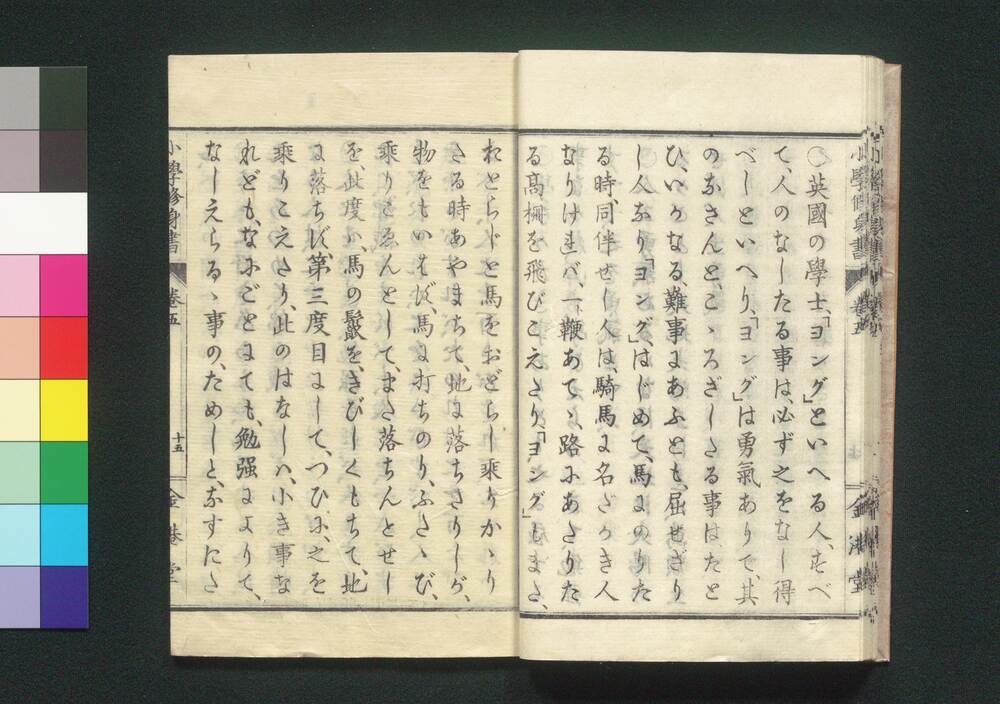 小學修身書 卷五 金港堂
〇英國の學士、「ヨング」といへる人、すべ
て、人のなしたる事は、必ず之をなし得
べしといへり、「ヨング」は勇氣ありて、其
のなさんと、こゝろざしたる事は、たと
ひ、いかなる、難事にあふとも、屈せざり
し人なり、「ヨング」はじめて、馬にのりた
る時、同伴せし人は、騎馬に名だかき人
なりければ、一鞭あてゝ、路にあたりた
る高柵を飛びこえたり、「ヨング」もまた、
おとらじと馬をおどらし乘りかゝり
たる時あやまちて、地に落ちたりしが、
物をもいはず、馬に打ちのり、ふたゝび、
乘りこゑんとして、また落ちんとせし
を、此度は、馬の鬣を、きびしくもちて、地
に落ちず、第三度目にして、つひに、之を
乘りこえたり、此のはなしハ、小き事な
れども、なにごとにても、勉强によりて、
なしえらるゝ事の、ためしと、なすにた
小學修身書 卷五 十五 金港堂